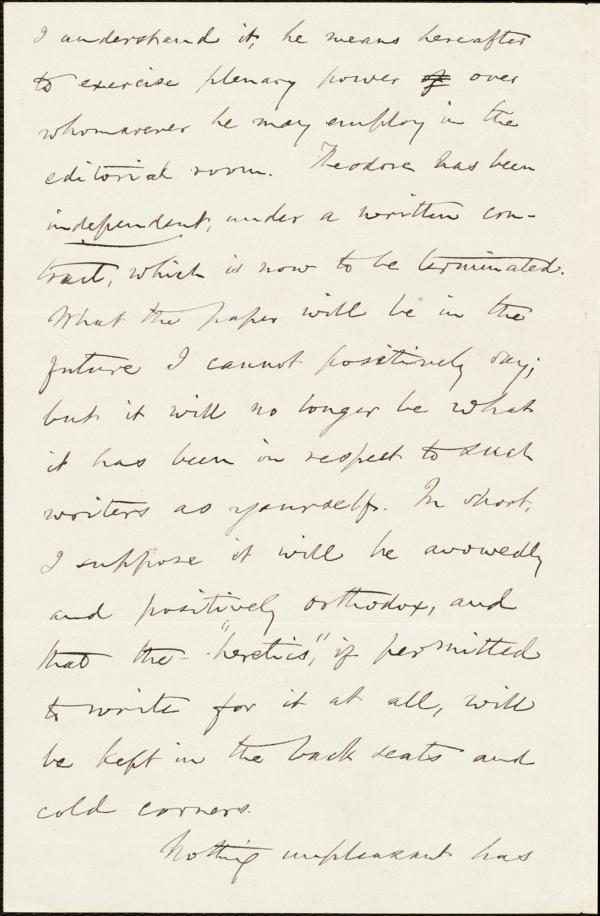 I understand it, he means hereafter
to exercise plenary power of over
whomsoever he may employ in the
editorial room. Theodore has been
independent, under a written con-
tract, which is now to be terminated.
What the paper will be in the
future I cannot positively say;
but it will no longer be what
it has been in respect to such
writers as yourself. In short,
I suppose it will be avowedly
and positively orthodox, and
that the "heretics," if permitted
to write for it at all, will
be kept in the back seats and
cold corners.
Nothing unpleasant has